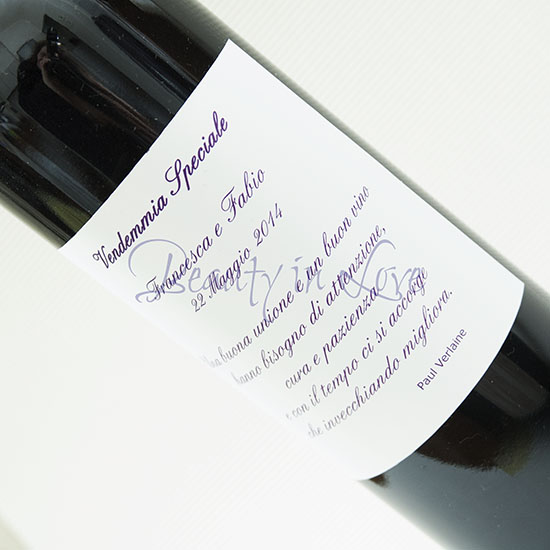 Vendemmia Speciale
Francesca e Fabio
22 Maggio 2014
Beauty in Love
Una buona unione e un buon vino
hanno bisogno di attenzione,
cura e pazienza
e con il tempo ci si accorge
che invecchiando migliora.
Paul Verlaine